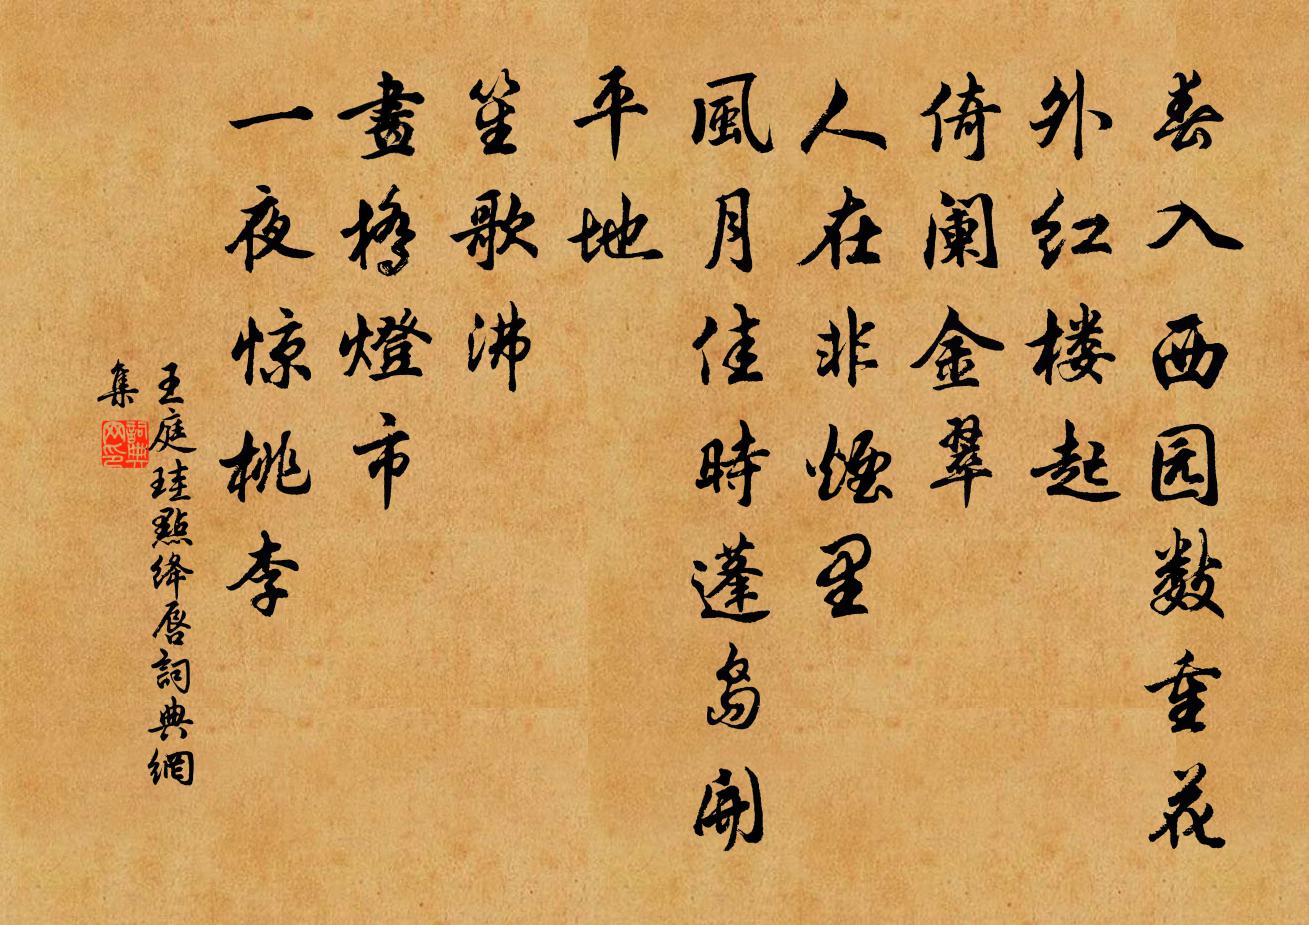 春入西园数重花
外红楼起
倚阑金翠
人在非烟里
風月佳時蓬岛開
平地
笙歌沸
畫橋燈市
一夜惊桃李
王庭珪點绛唇詞典網
集
詞典
网印